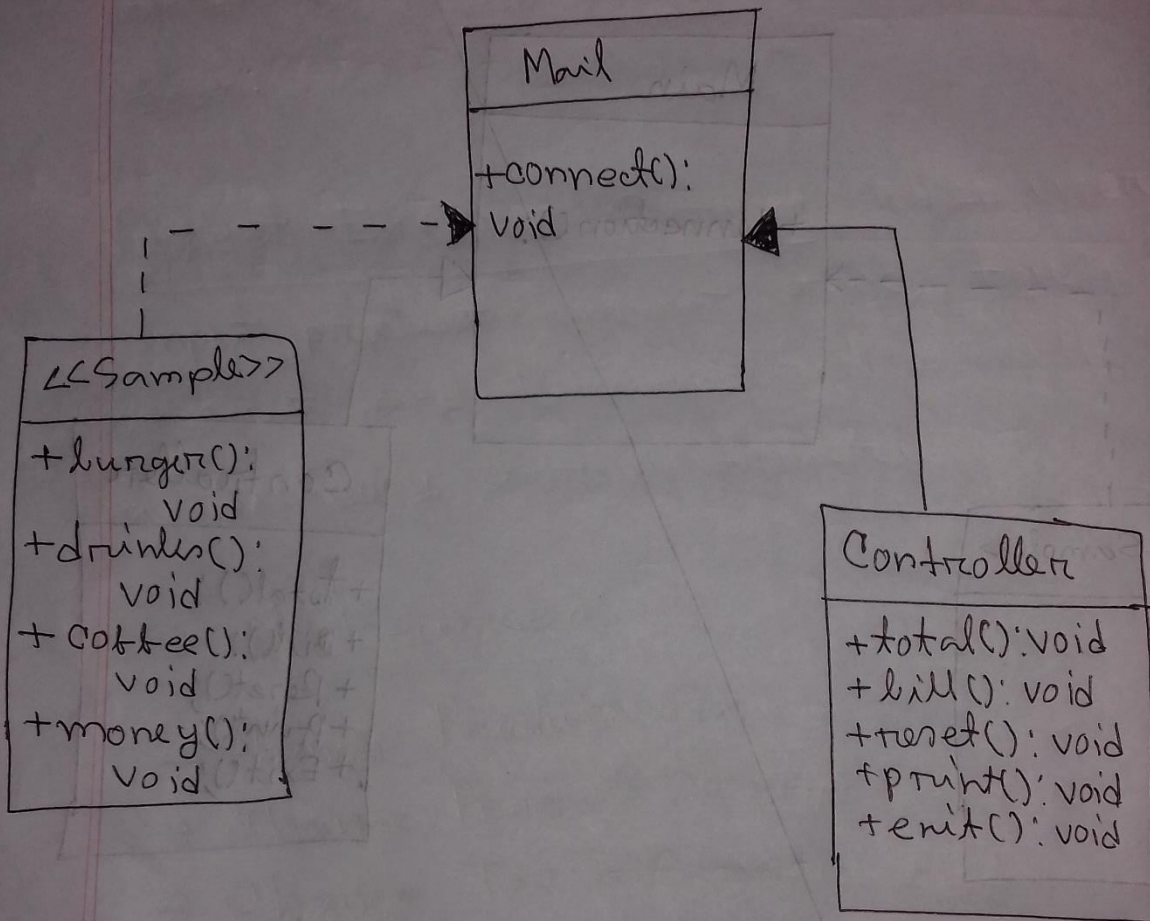 Mail
+connect():
void
<<Sample>>
+burger():
void
+drinks():
void
+ coffee():
void
+money():
void
Controller
+total():void
+bill(): void
+reset(): void
+print(): void
+exit(): void